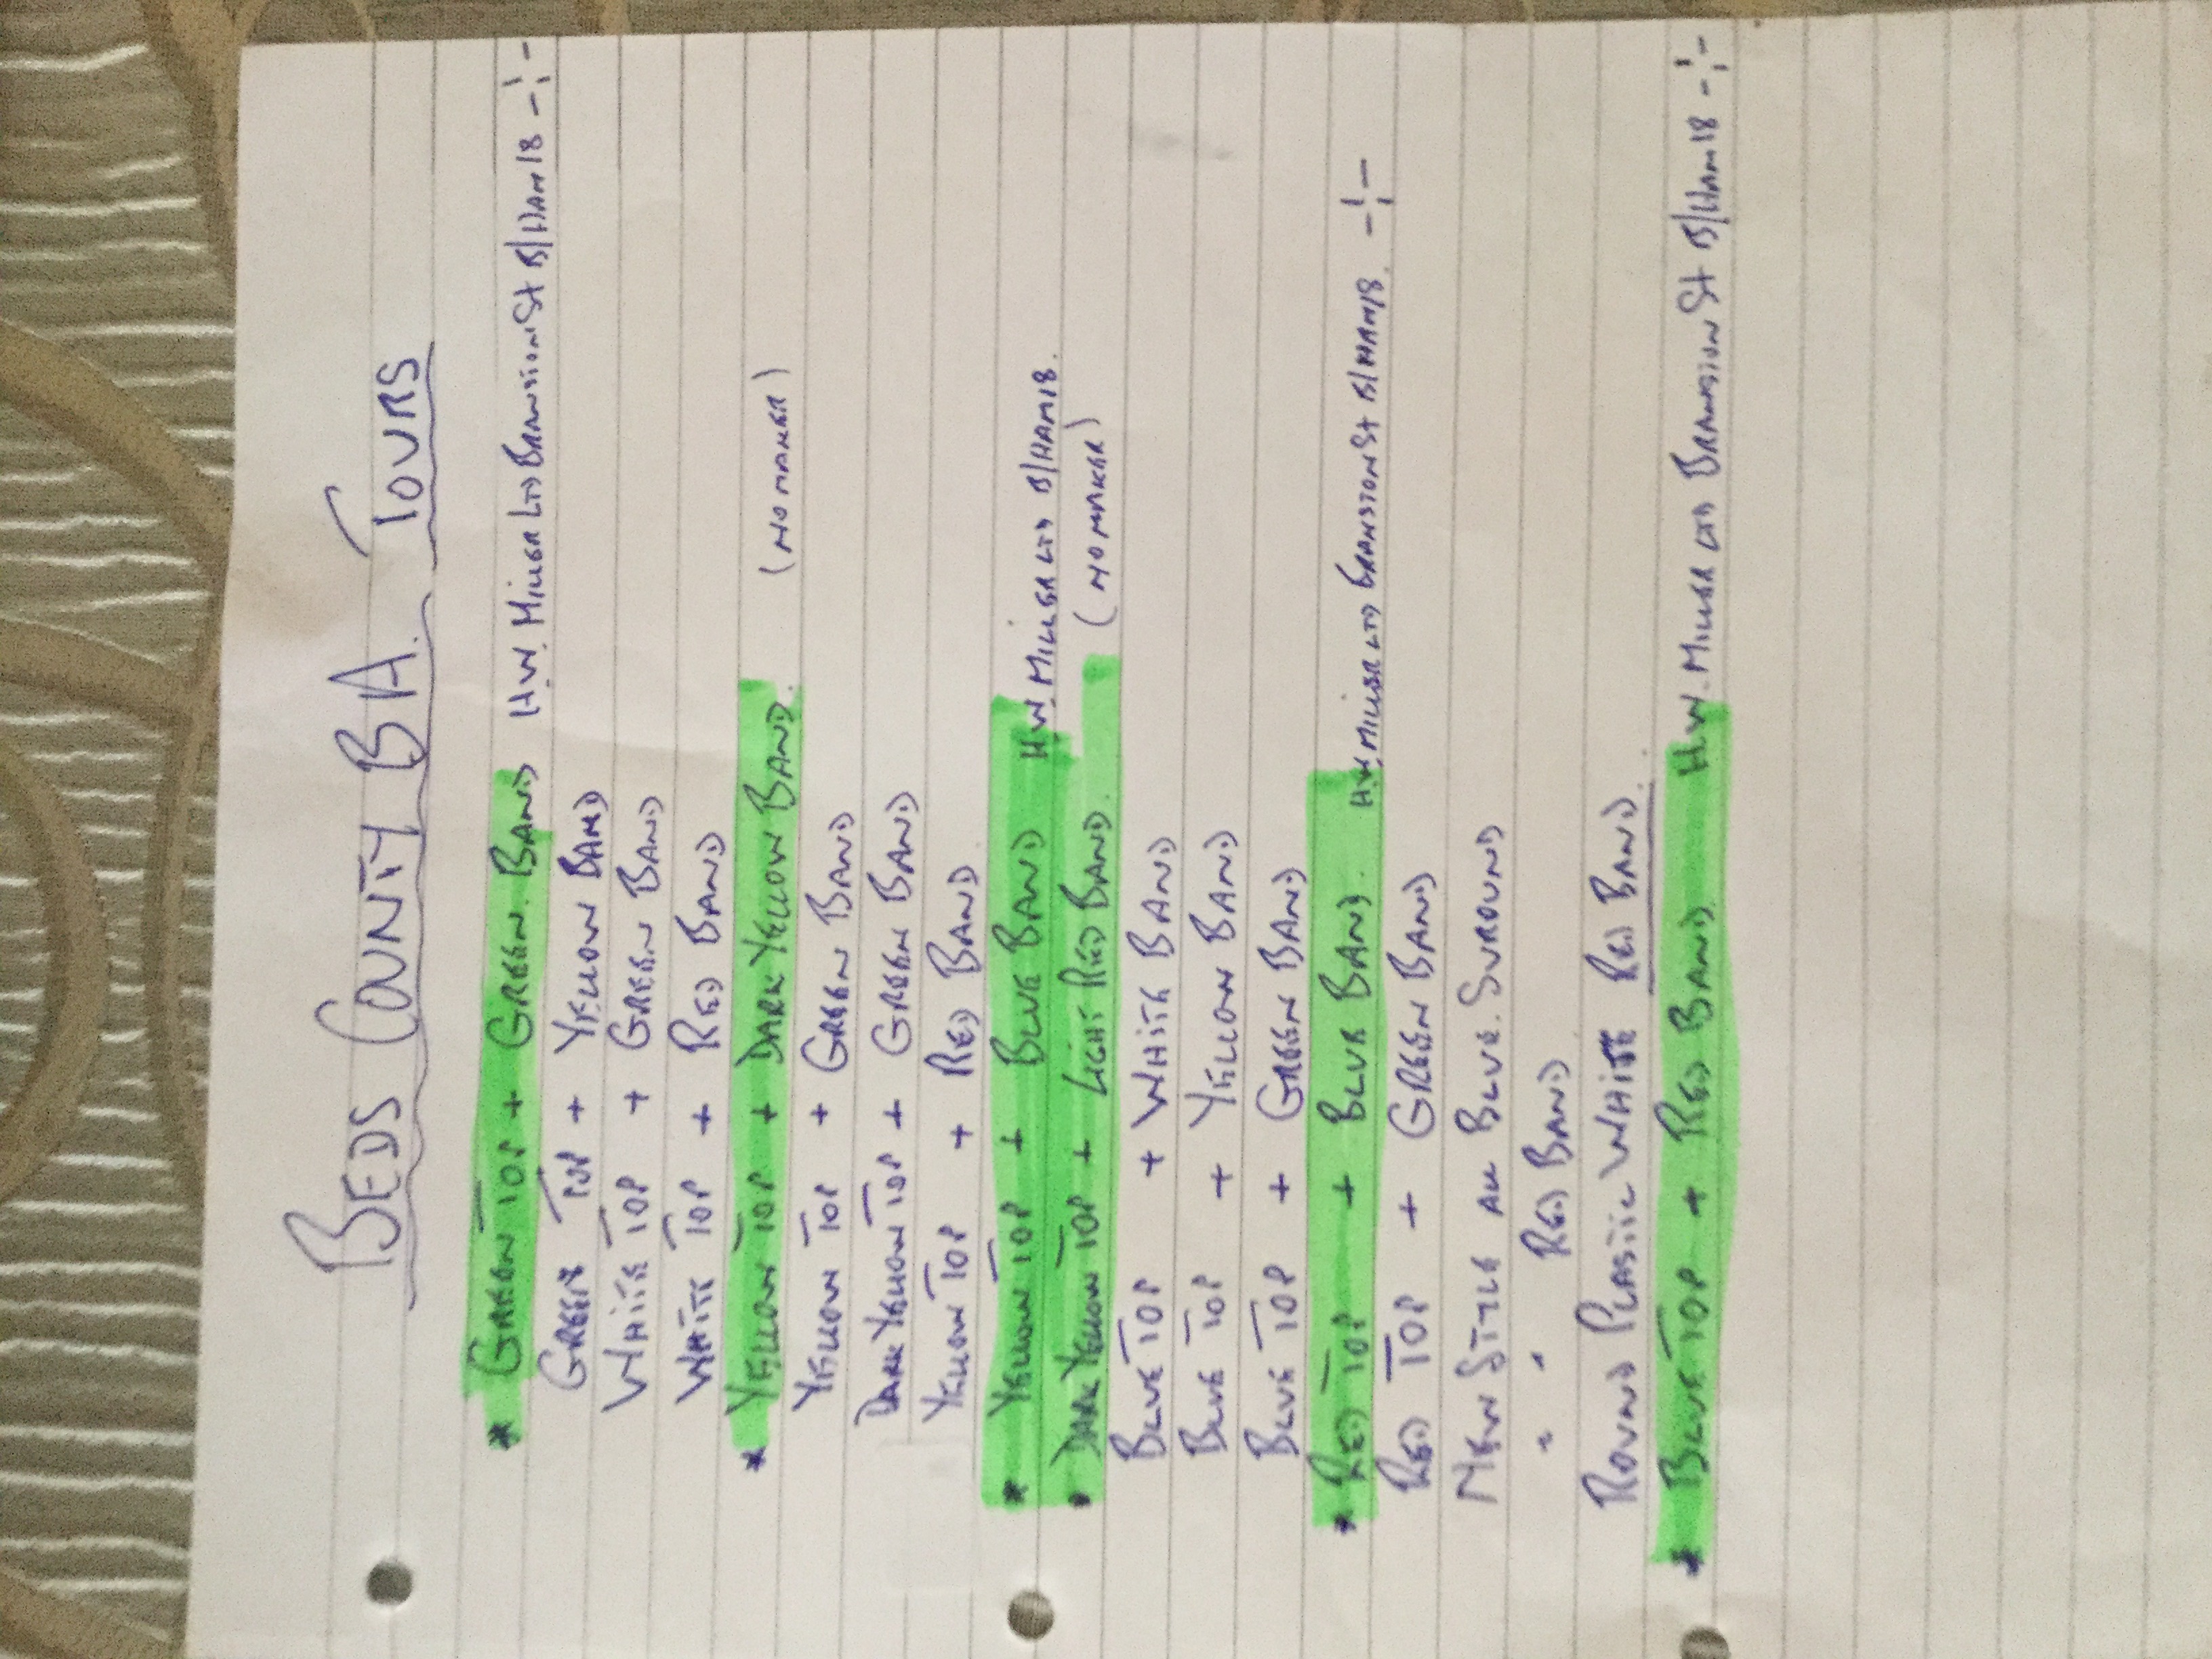 BEDS COUNTY BA. TOURS
* GREEN TOP + GREEN BAND H.W. MILLER LTD BRANSTON St B/HAM 18 -¦-
GREEN TOP + YELLOW BAND
WHITE TOP + GREEN BAND
WHITE TOP + RED BAND
* YELLOW TOP + DARK YELLOW BAND. (NO MAKER)
YELLOW TOP + GREEN BAND
DARK YELLOW TOP + GREEN BAND
YELLOW TOP + RED BAND
* YELLOW TOP + BLUE BAND H.W. MILLER LTD B/HAM 18.
* DARK YELLOW TOP + LIGHT RED BAND. (NO MAKER)
BLUE TOP + WHITE BAND
BLUE TOP + YELLOW BAND
BLUE TOP + GREEN BAND
* RED TOP + BLUE BAND. H.W. MILLER LTD BRANSTON St B/HAM 18. -¦-
RED TOP + GREEN BAND
NEW STYLE ALL BLUE. SUROUND
" " RED BAND
ROUND PLASTIC WHITE RED BAND.
* BLUE TOP + RED BAND H.W. MILLER LTD BRANSTON St B/HAM 18 -¦-